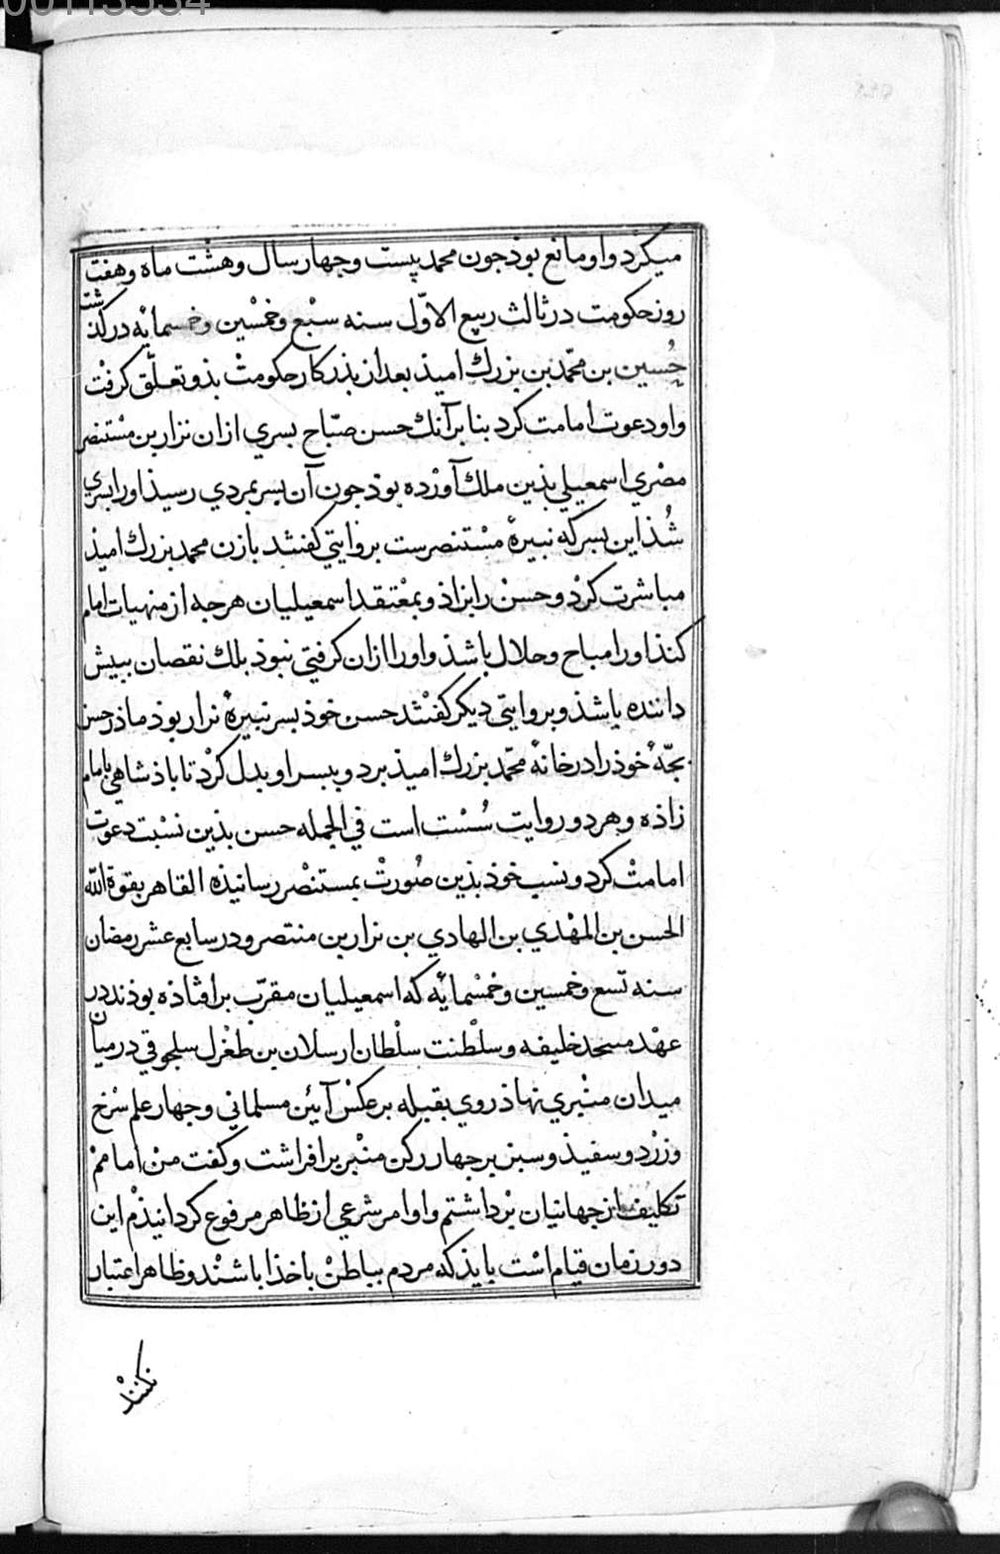 00113534
میکرد و او مانع بوذ جون محمد بیست و جهار سال و هشت ماه و هفت
روز حکومت در ثالث ربیع الاوّل سنه سبْع وخمْسین وخمسمایه در کذشت
حُسین بن محمّد بن بزرك امیذ بعد از بذر کار حکومتْ بذو تعلّق کرفت
واو دعوت امامت کرد بنا بر آنك حسن صبّاح بسري ازان نزار بن مسْتنصر
مصْري اسمعیلي بذین ملك آورْده بوذ جون آن بسر بمردي رسیذ اورا بسري
شُذ این بسر که نبیرهٔ مسْتنصرست بروایتي کفتند با زن محمد بزرك امیذ
مباشرت کرْد و حسنْ را بزاذ و بمعْتقد اسمعیلیان هرجه از منهیات امام
کند اورا مباح و حلال باشذ و اورا ازان کرفتي نبوذ بلك نقصان ببیش
داننده باشذ و بروایتي دیکر کفتند حسن خوذ بسر نبیرهٔ نزار بوذ ماذر حسن
بجّهٔ خوذ را در خانهٔ محمّد بزرك امیذ برد و ببسر او بدل کرْد تا باذشاهي بامام
زاذه و هر دو روایت سُسْت است في الجمله حسن بذین نسْبت دعوت
امامتْ کرد و نسب خوذ بذین صُورتْ بمستنصْر رسانیذه القاهر بقوة الله
الحسن بن المهْدي بن الهادي بن نزار بن منتصر و در سابع عشر رمضان
سنه تسع وخمسین وخمْسمایه که اسمعیلیان مقرّب بر افتاذه بوذند در
عهْد مسجد خلیفه و سلْطنت سلْطان ارسلان بن طغرل سلجوقي در میان
میدان منبري نهاذ روي بقبله بر عکس آیین مسلماني و جهار علم سرْخ
و زرْد و سفیذ و سبز بر جهار رکن منبر بر افراشت و کفت منْ امامم
تکلیف از جهانیان برداشتم و اوامر شرعي از ظاهر مرفوع کردانیذم این
دور زمان قیام است بایذ که مردم بباطنْ با خذا باشنْد و ظاهر اعتبار
نکنند